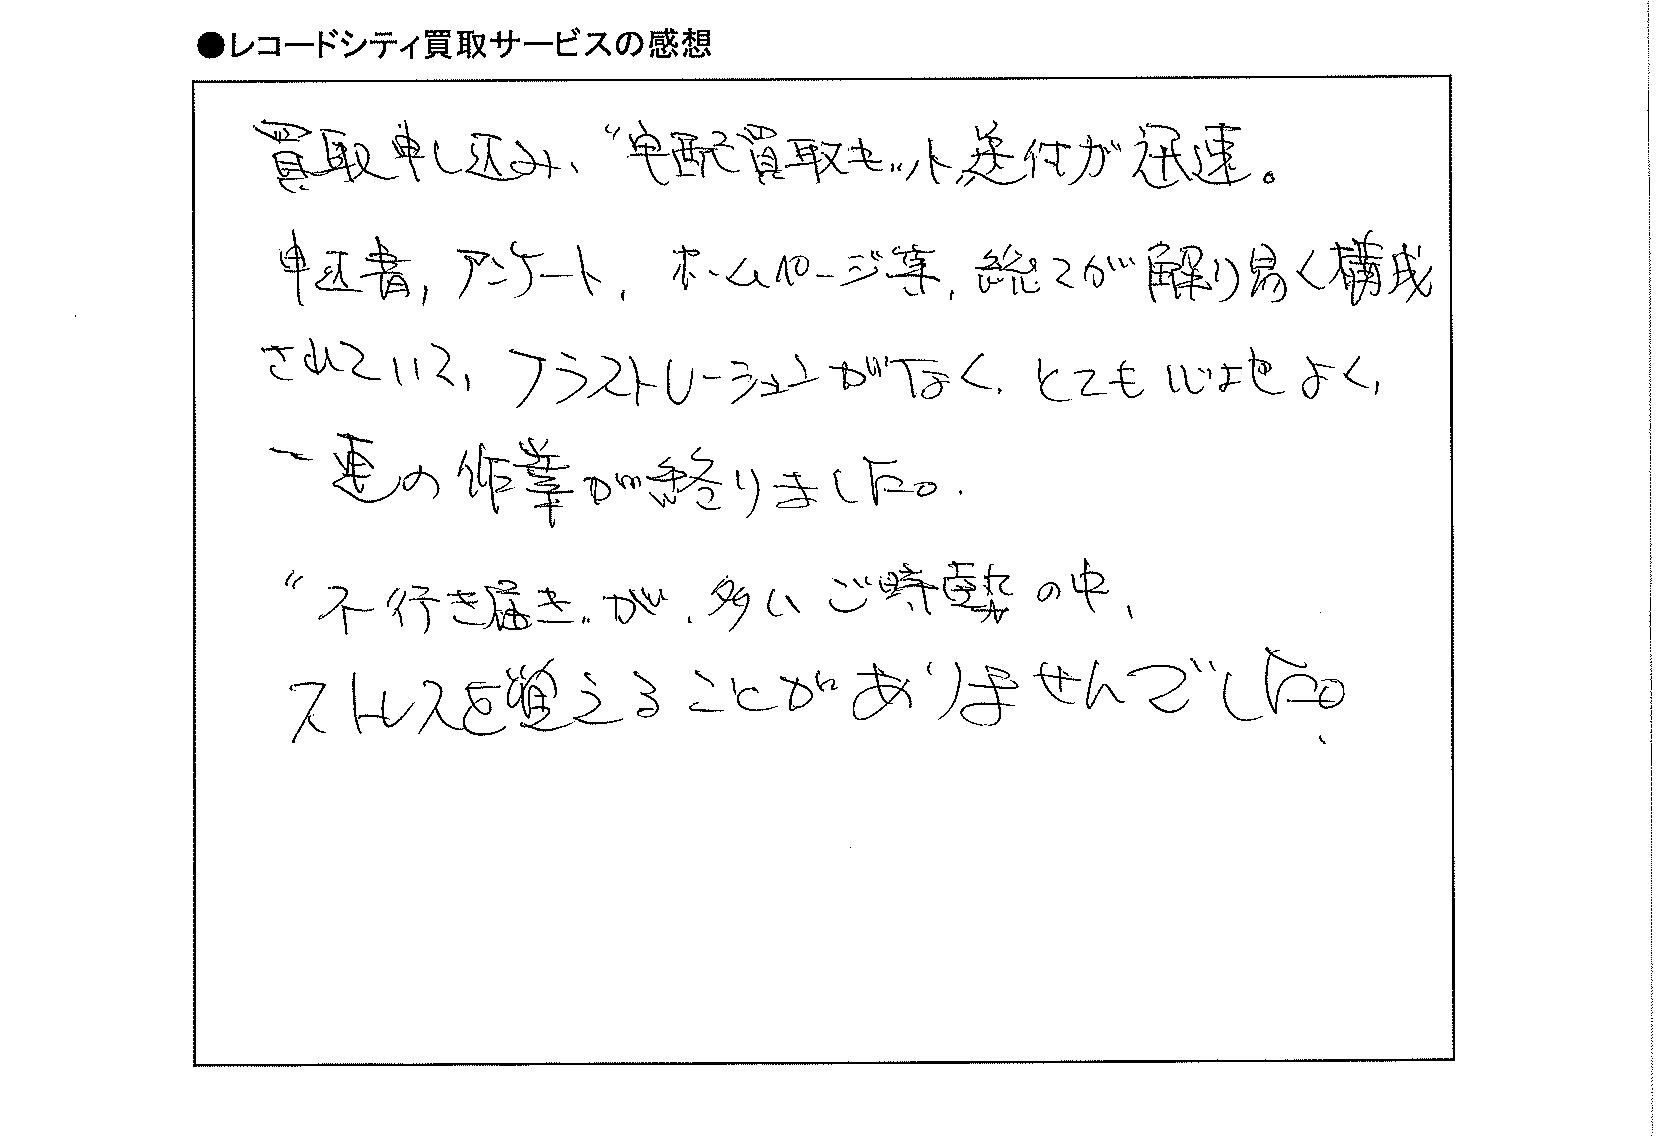 ●レコードシティ買取サービスの感想
買取申し込み、“宅配買取キット„送付が迅速。
申込書，アンケート，ホームページ等，総てが解り易く構成
されていて，フラストレーションがなく，とても心地よく，
一連の作業が終りました。
“不行き届き„が，多いご時勢の中，
ストレスを覚えることがありませんでした。